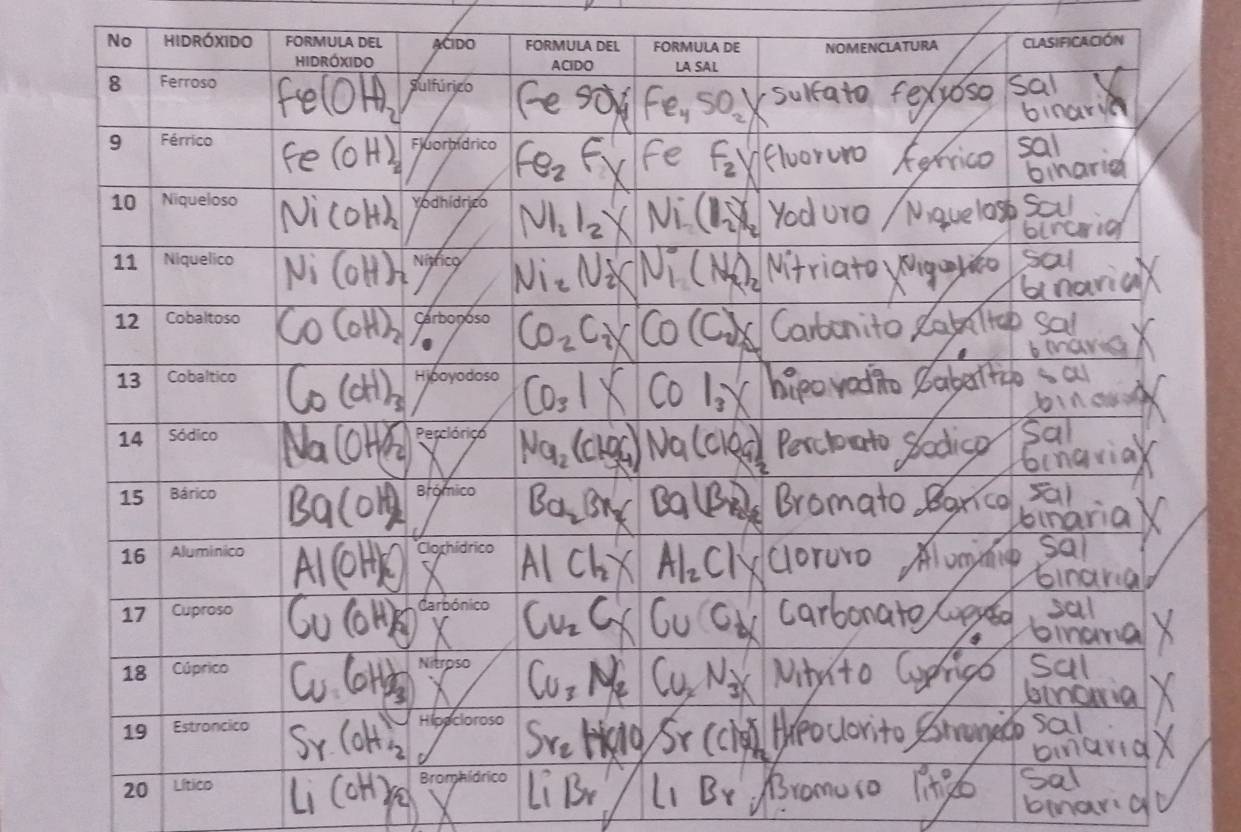 No HIDRÓXIDO FORMULA DEL HIDRÓXIDO ACIDO FORMULA DEL ACIDO FORMULA DE LA SAL NOMENCLATURA CLASIFICACIÓN
8 Ferroso Fe(OH)2 Sulfúrico Fe SO4 Fe4 SO2 Sulfato ferroso Sal binaria
9 Férrico Fe (OH)2 Fluorhídrico Fe2 F Fe F2 fluoruro ferrico sal binaria
10 Niqueloso Ni (OH)2 Yodhídrico Ni2 I2 Ni (I2)2 Yoduro Niqueloso Sal binaria
11 Niquelico Ni (OH)2 Nítrico Ni2 Ni (N2)2 Nitriato Niquelico Sal binaria
12 Cobaltoso CO (OH)2 Carbonoso CO2 C2 CO Carbonito sal binaria
13 Cobaltico Co (OH)3 Hipoyodoso CO3 I CO I3 hipoyodito sal
14 Sódico Na (OH) Perclórico Na2 (ClO4) Na (ClO4)2 Perclorato Sodico Sal binaria
15 Bárico Ba (OH)2 Brómico Ba2 Br Ba Bromato Barico Sal binaria
16 Aluminico Al (OH) Clorhídrico Al Cl2 Al2 Cl Cloruro Sal binaria
17 Cuproso Cu (OH) Carbónico Cu2 C Cu Carbonato sal binaria
18 Cúprico Cu (OH) Nitroso Cu2 N2 Cu2 N3 Nitrito Cuprico Sal binaria
19 Estroncico Sr (OH)2 Hipocloroso Sr2 Sr (ClO)2 Hipoclorito Sal binaria
20 Lítico Li (OH) Bromhídrico Li Br Li Br Bromuro litico Sal binaria